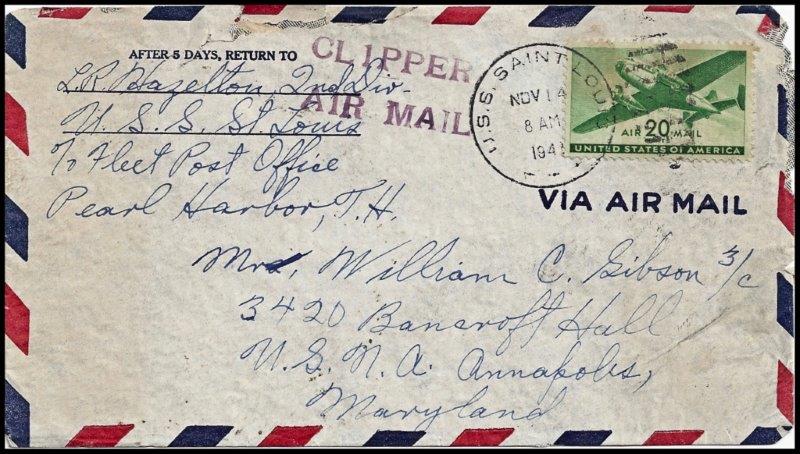 AFTER 5 DAYS, RETURN TO
CLIPPER
AIR MAIL
L.R. Hazelton, 2nd Div.
U.S.S. St Louis
c/o Fleet Post Office
Pearl Harbor, T.H.
U.S.S. SAINT LOUIS
NOV 14
8 AM
194
AIR 20¢ MAIL
UNITED STATES OF AMERICA
VIA AIR MAIL
Mr. William C. Gibson 3/c
3420 Bancroft Hall
U.S.N.A. Annapolis,
Maryland